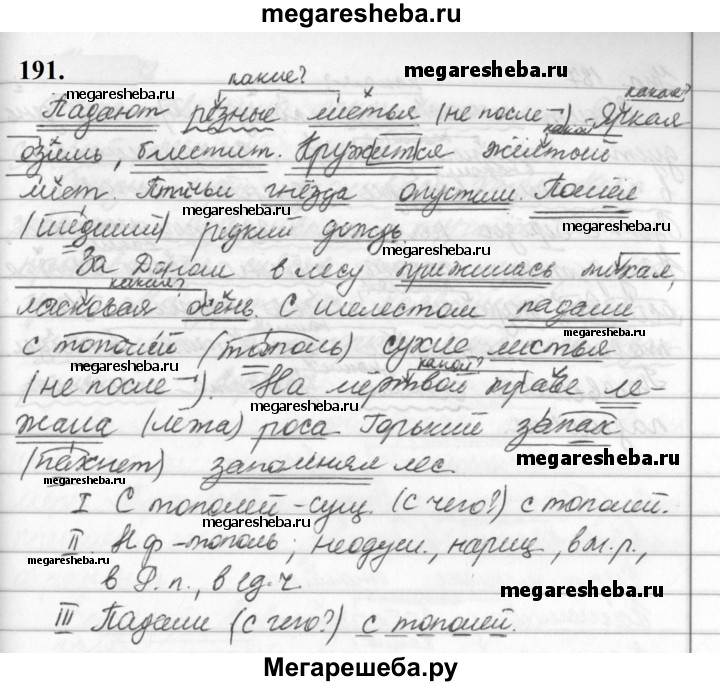 megaresheba.ru
191.
какие?
megaresheba.ru
megaresheba.ru
какая?
Падают резные листья (не после ¬). Яркая
какой?
озимь, блестит. Кружится жёлтый
лист. Птичьи гнёзда опустели. Пошёл
megaresheba.ru
megaresheba.ru
(шедший) редкий дождь.
За Доном в лесу прижилась тихая,
какая?
ласковая осень. С шелестом падали
megaresheba.ru
с тополей (тополь) сухие листья
megaresheba.ru
какой?
(не после ¬). На мёртвой траве ле-
megaresheba.ru
жала (лёжа) роса Горький запах
megaresheba.ru
(пахнет) заполнял лес.
I С тополей - сущ. (с чего?) с тополей.
megaresheba.ru
II Н.ф - тополь; неодуш., нариц, в м.р.,
megaresheba.ru
в Р.п., в ед.ч.
megaresheba.ru
III Падали (с чего?) с тополей.
megaresheba.ru
Мегарешеба.ру